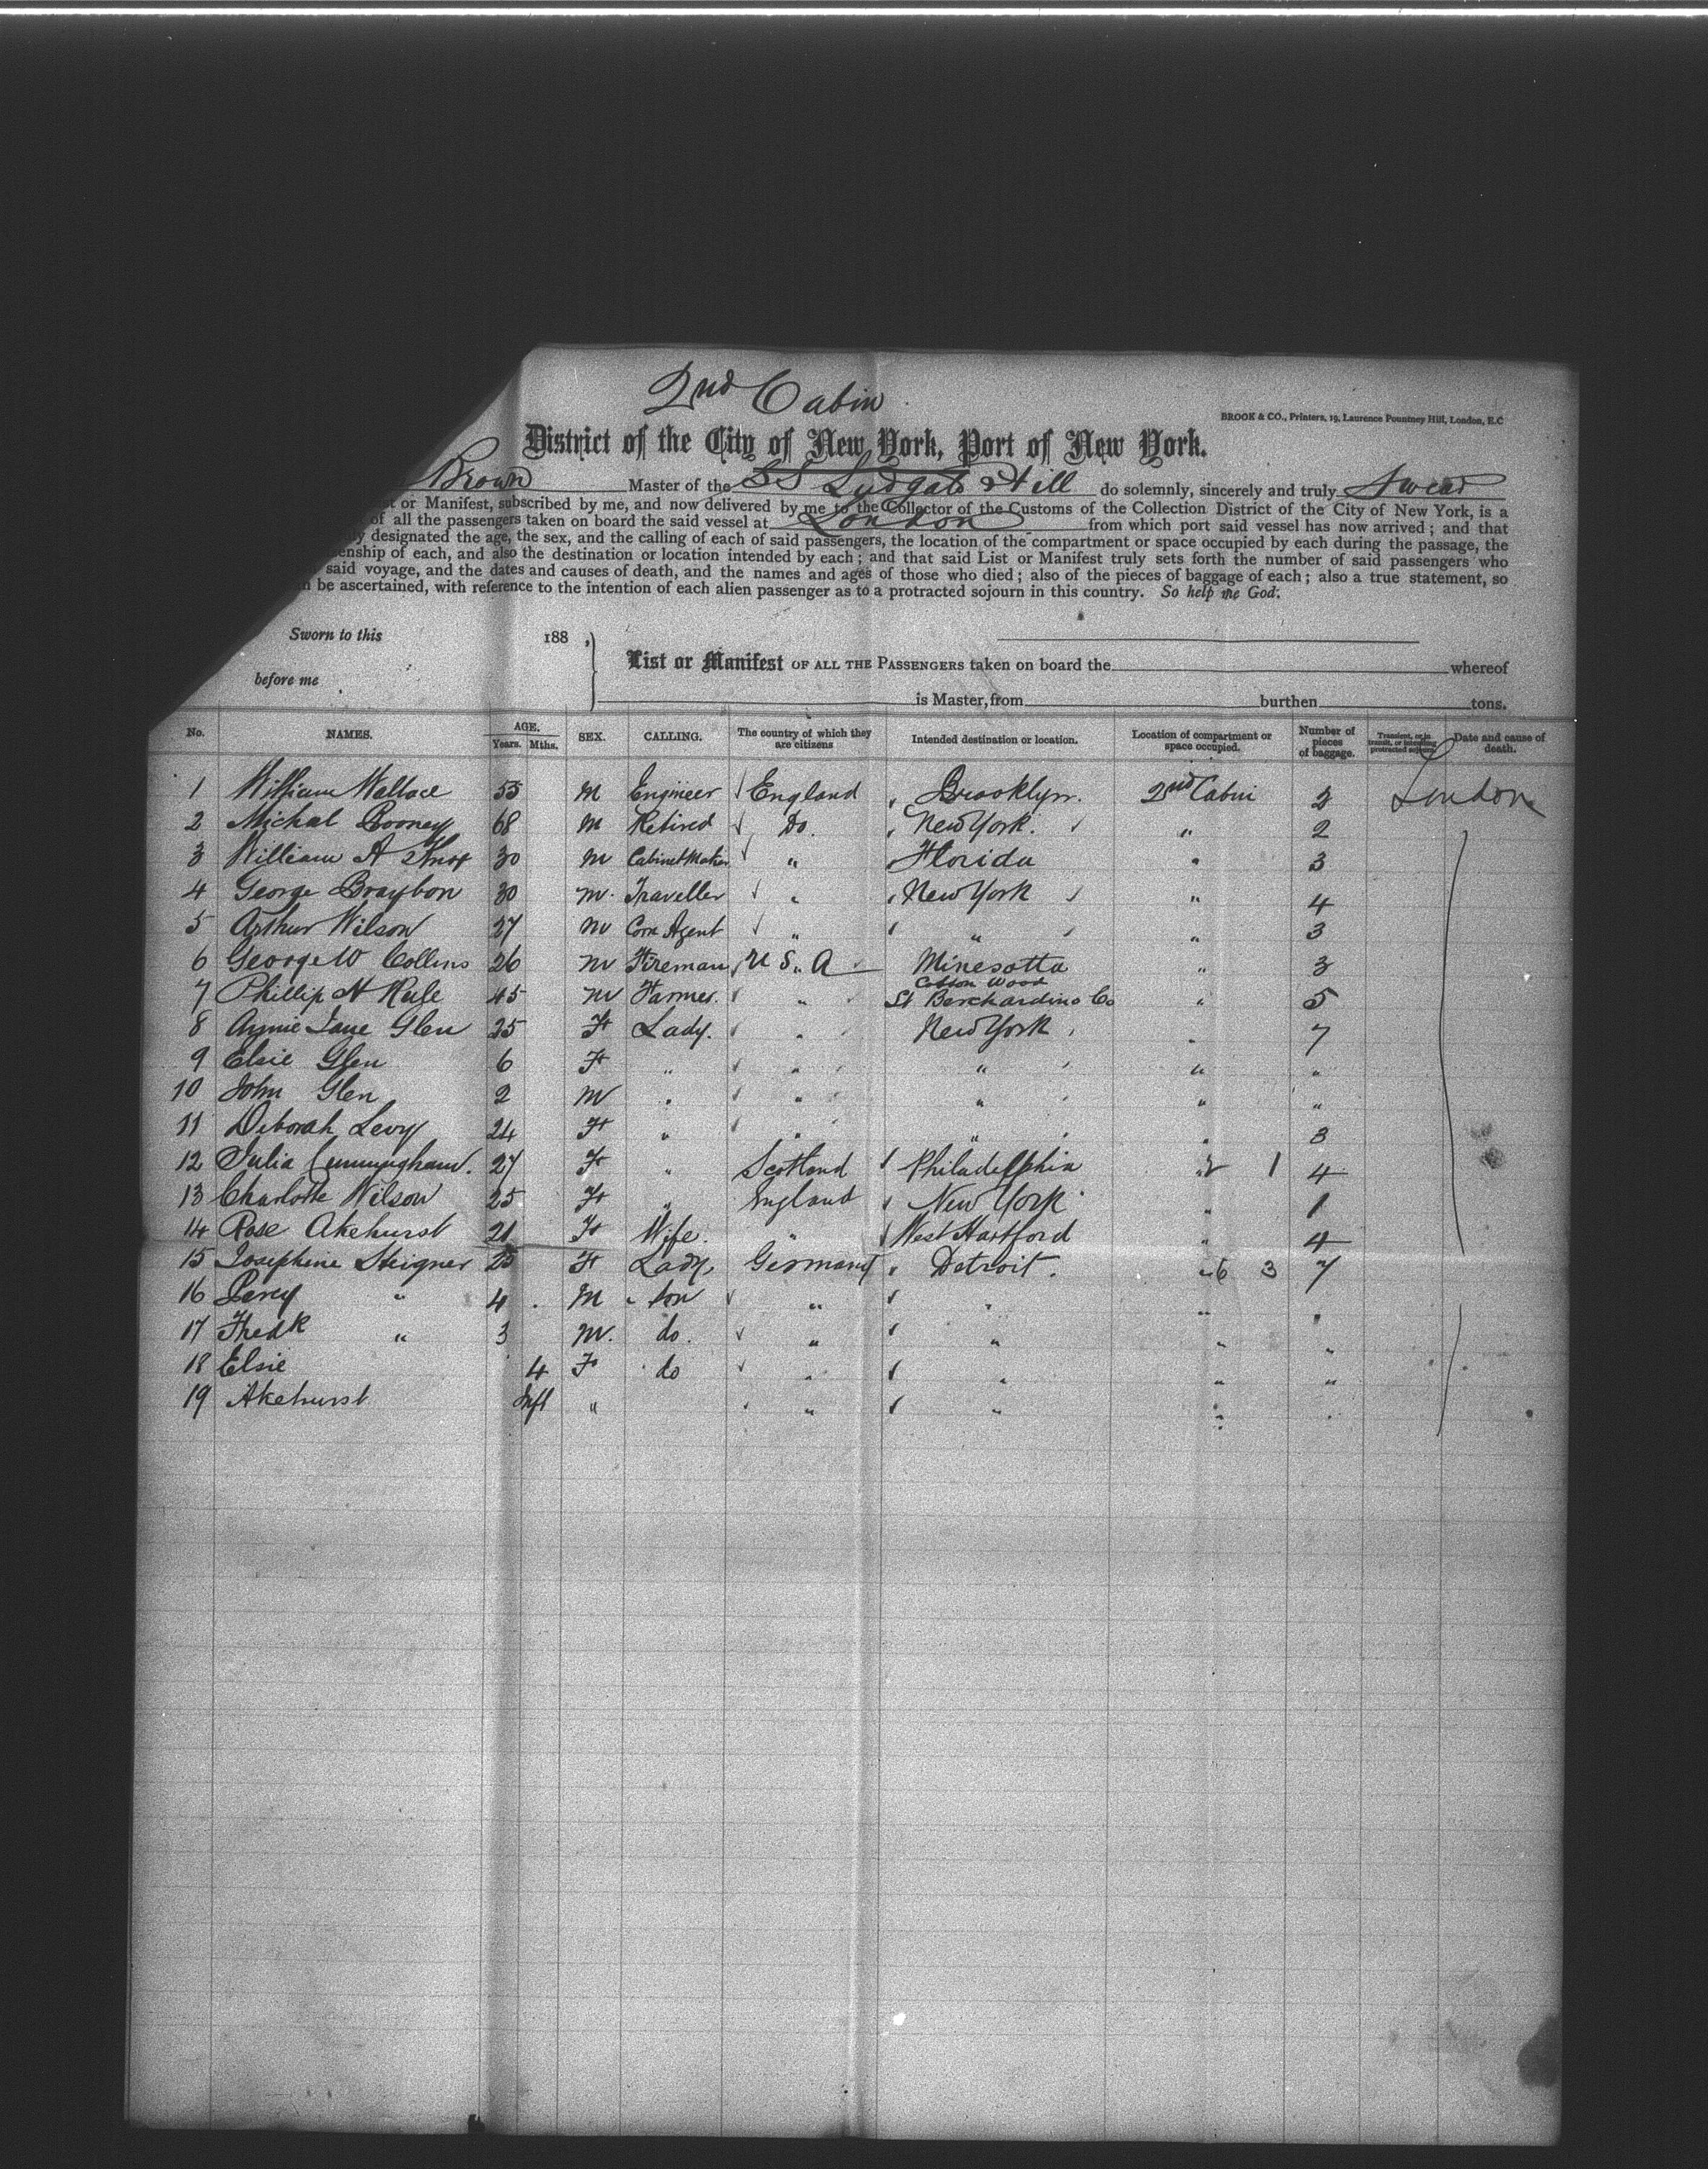 2nd Cabin
BROOK & CO., Printers, 19, Laurence Pountney Hill, London, E.C
District of the City of New York, Port of New York.
Brown Master of the SS Ludgate Hill do solemnly, sincerely and truly Swear
or Manifest, subscribed by me, and now delivered by me to the Collector of the Customs of the Collection District of the City of New York, is a
of all the passengers taken on board the said vessel at London from which port said vessel has now arrived; and that
designated the age, the sex, and the calling of each of said passengers, the location of the compartment or space occupied by each during the passage, the
enship of each, and also the destination or location intended by each; and that said List or Manifest truly sets forth the number of said passengers who
said voyage, and the dates and causes of death, and the names and ages of those who died; also of the pieces of baggage of each; also a true statement, so
be ascertained, with reference to the intention of each alien passenger as to a protracted sojourn in this country. So help me God.
Sworn to this 188 ,
List or Manifest OF ALL THE PASSENGERS taken on board the whereof
before me
is Master, from burthen tons.
No. NAMES. AGE. Years. Mths. SEX. CALLING. The country of which they are citizens Intended destination or location. Location of compartment or space occupied. Number of pieces of baggage. Transient, or in transit, or intending protracted sojourn. Date and cause of death.
1 William Wallace 55 M Engineer England Brooklyn. 2nd Cabin 2 London
2 Michal Rooney 68 M Retired Do. New York. " 2
3 William A 30 M Cabinet Maker " Florida " 3
4 George Braybon 30 M. Traveller " New York " 4
5 Arthur Wilson 27 M Corn Agent " " " 3
6 George W Collins 26 M Fireman U S. A Minesotta " 3
7 Phillip H Rule 45 M Farmer. " Cotton Wood St Berchardino Co " 5
8 Annie Jane Glen 25 F Lady. " New York " 7
9 Elsie Glen 6 F " " " " "
10 John Glen 2 M " " " " "
11 Deborah Levy 24 F " " " " 3
12 Julia Cunningham. 27 F " Scotland Philadelphia " 2 1 4
13 Charlotte Wilson 25 F " England New York " 1
14 Rose Akehurst 21 F Wife. " West Hartford " 4
15 Josephine Steigner 25 F Lady, Germany Detroit. " 6 3 7
16 Percy " 4 M " Son " " " "
17 Fredk " 3 M. do. " " " "
18 Elsie 4 F do " " " "
19 Akehurst Inft " " " " "